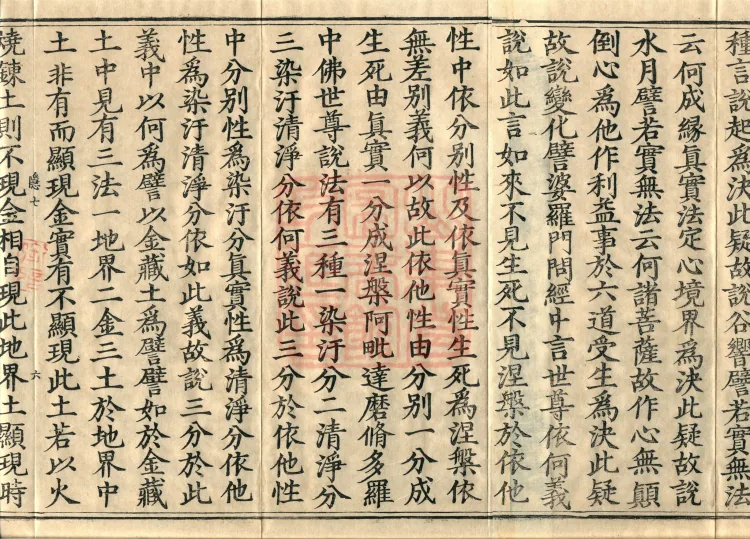 種言說起為決此疑故說谷響譬若實無法
云何成緣真實法定心境界為決此疑故說
水月譬若實無法云何諸菩薩故作心無顛
倒心為他作利益事於六道受生為決此疑
故說變化譬婆羅門問經中言世尊依何義
說如此言如來不見生死不見涅槃於依他
性中依分別性及依真實性生死為涅槃依
無差別義何以故此依他性由分別一分成
生死由真實一分成涅槃阿毗達磨脩多羅
中佛世尊說法有三種一染汙分二清淨分
三染汙清淨分依何義說此三分於依他性
中分別性為染汙分真實性為清淨分依他
性為染汙清淨分依如此義故說三分於此
義中以何為譬以金藏土為譬譬如於金藏
土中見有三法一地界二金三土於地界中
土非有而顯現金實有不顯現此土若以火
燒鍊土則不現金相自現此地界土顯現時